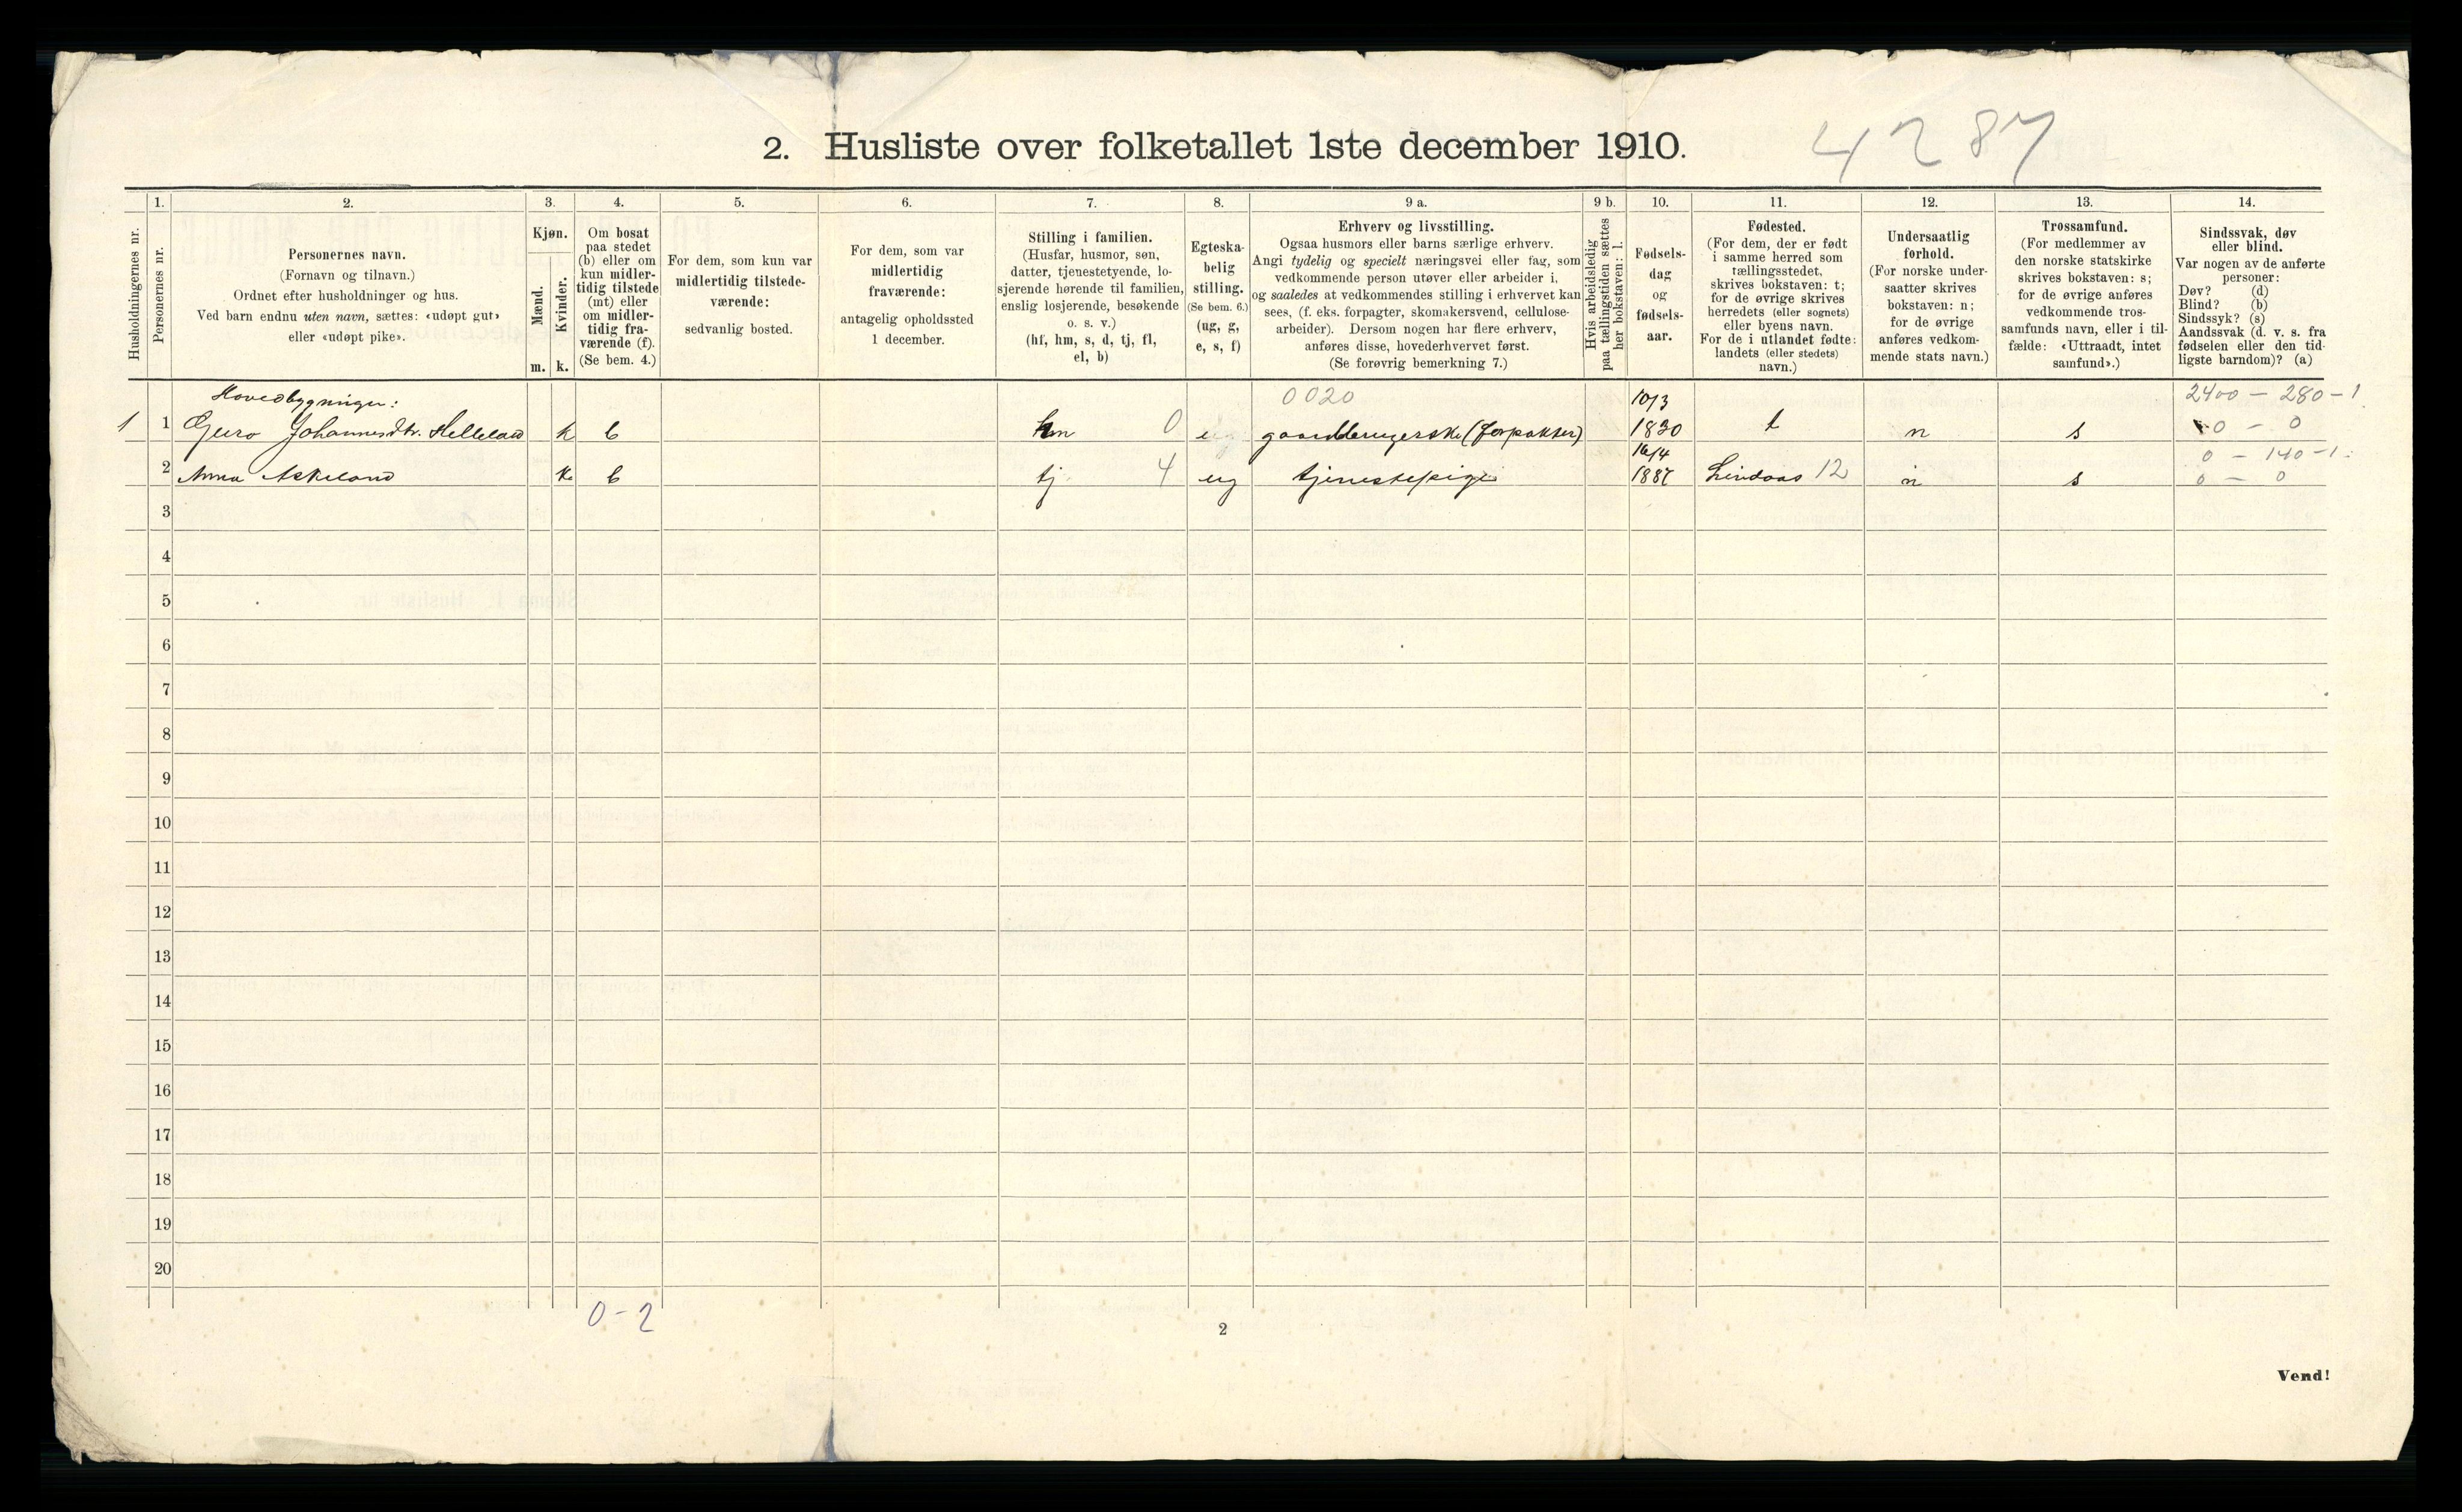 2. Husliste over folketallet 1ste december 1910.
4287
1.
2.
3.
4.
5.
6.
7.
8.
9 a.
9 b.
10.
11.
12.
13.
14.
Husholdningernes nr.
Personernes nr.
Personernes navn.
(Fornavn og tilnavn.)
Ordnet efter husholdninger og hus.
Ved barn endnu uten navn, sættes: «udøpt gut»
eller «udøpt pike».
Kjøn.
Mænd.
Kvinder.
m.
k.
Om bosat
paa stedet
(b) eller om
kun midler-
tidig tilstede
(mt) eller
om midler-
tidig fra-
værende (f).
(Se bem. 4.)
For dem, som kun var
midlertidig tilstede-
værende:
sedvanlig bosted.
For dem, som var
midlertidig
fraværende:
antagelig opholdssted
1 december.
Stilling i familien.
(Husfar, husmor, søn,
datter, tjenestetyende, lo-
sjerende hørende til familien,
enslig losjerende, besøkende
o. s. v.)
(hf, hm, s, d, tj, fl,
el, b)
Egteska-
belig
stilling.
(Se bem. 6.)
(ug, g,
e, s, f)
Erhverv og livsstilling.
Ogsaa husmors eller barns særlige erhverv.
Angi tydelig og specielt næringsvei eller fag, som
vedkommende person utøver eller arbeider i,
og saaledes at vedkommendes stilling i erhvervet kan
sees, (f. eks. forpagter, skomakersvend, cellulose-
arbeider). Dersom nogen har flere erhverv,
anføres disse, hovederhvervet først.
(Se forøvrig bemerkning 7.)
Hvis arbeidsledig
paa tællingstiden sættes
her bokstaven: l.
Fødsels-
dag
og
fødsels-
aar.
Fødested.
(For dem, der er født
i samme herred som
tællingsstedet,
skrives bokstaven: t;
for de øvrige skrives
herredets (eller sognets)
eller byens navn.
For de i utlandet fødte:
landets (eller stedets)
navn.)
Undersaatlig
forhold.
(For norske under-
saatter skrives
bokstaven: n;
for de øvrige
anføres vedkom-
mende stats navn.)
Trossamfund.
(For medlemmer av
den norske statskirke
skrives bokstaven: s;
for de øvrige anføres
vedkommende tros-
samfunds navn, eller i til-
fælde: «Uttraadt, intet
samfund».)
Sindssvak, døv
eller blind.
Var nogen av de anførte
personer:
Døv? (d)
Blind? (b)
Sindssyk? (s)
Aandssvak (d. v. s. fra
fødselen eller den tid-
ligste barndom)? (a)
Hovedbygningen:
0020
10/3
2400 - 280 - 1
1 1 Guro Johannesdtr. Helleland k b hm 0 e gaardbrugerske (forpakter) 1830 t n s 0 - 0
16/4
0 - 140 - 1
2 Anna Askeland k b tj 4 ug tjenestepige Lindaas 12 n s 0 - 0
3
4
5
6
7
8
9
10
11
12
13
14
15
16
17
18
19
20
0 - 2
2
Vend!